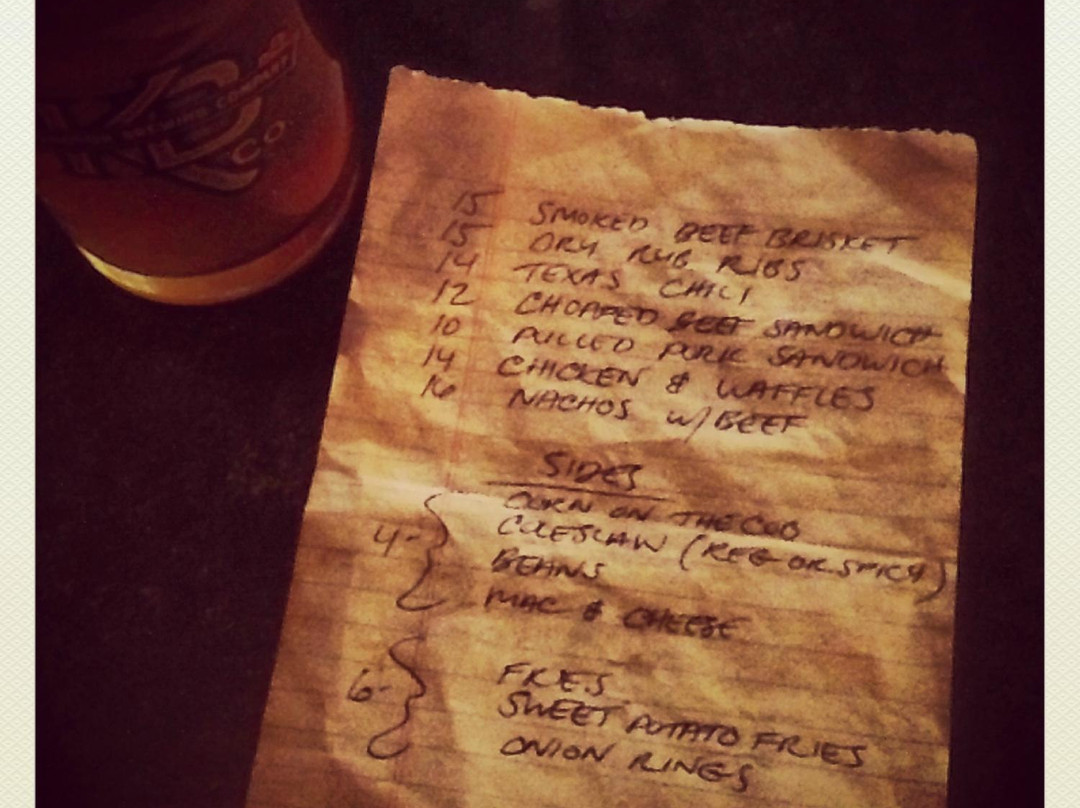 CO
COMPANY
15 SMOKED BEEF BRISKET
15 DRY RUB RIBS
14 TEXAS CHILI
12 CHOPPED BEEF SANDWICH
10 PULLED PORK SANDWICH
14 CHICKEN & WAFFLES
16 NACHOS W/BEEF
SIDES
CORN ON THE COB
4- COLESLAW (REG OR SPICY)
BEANS
MAC & CHEESE
FRIES
6- SWEET POTATO FRIES
ONION RINGS